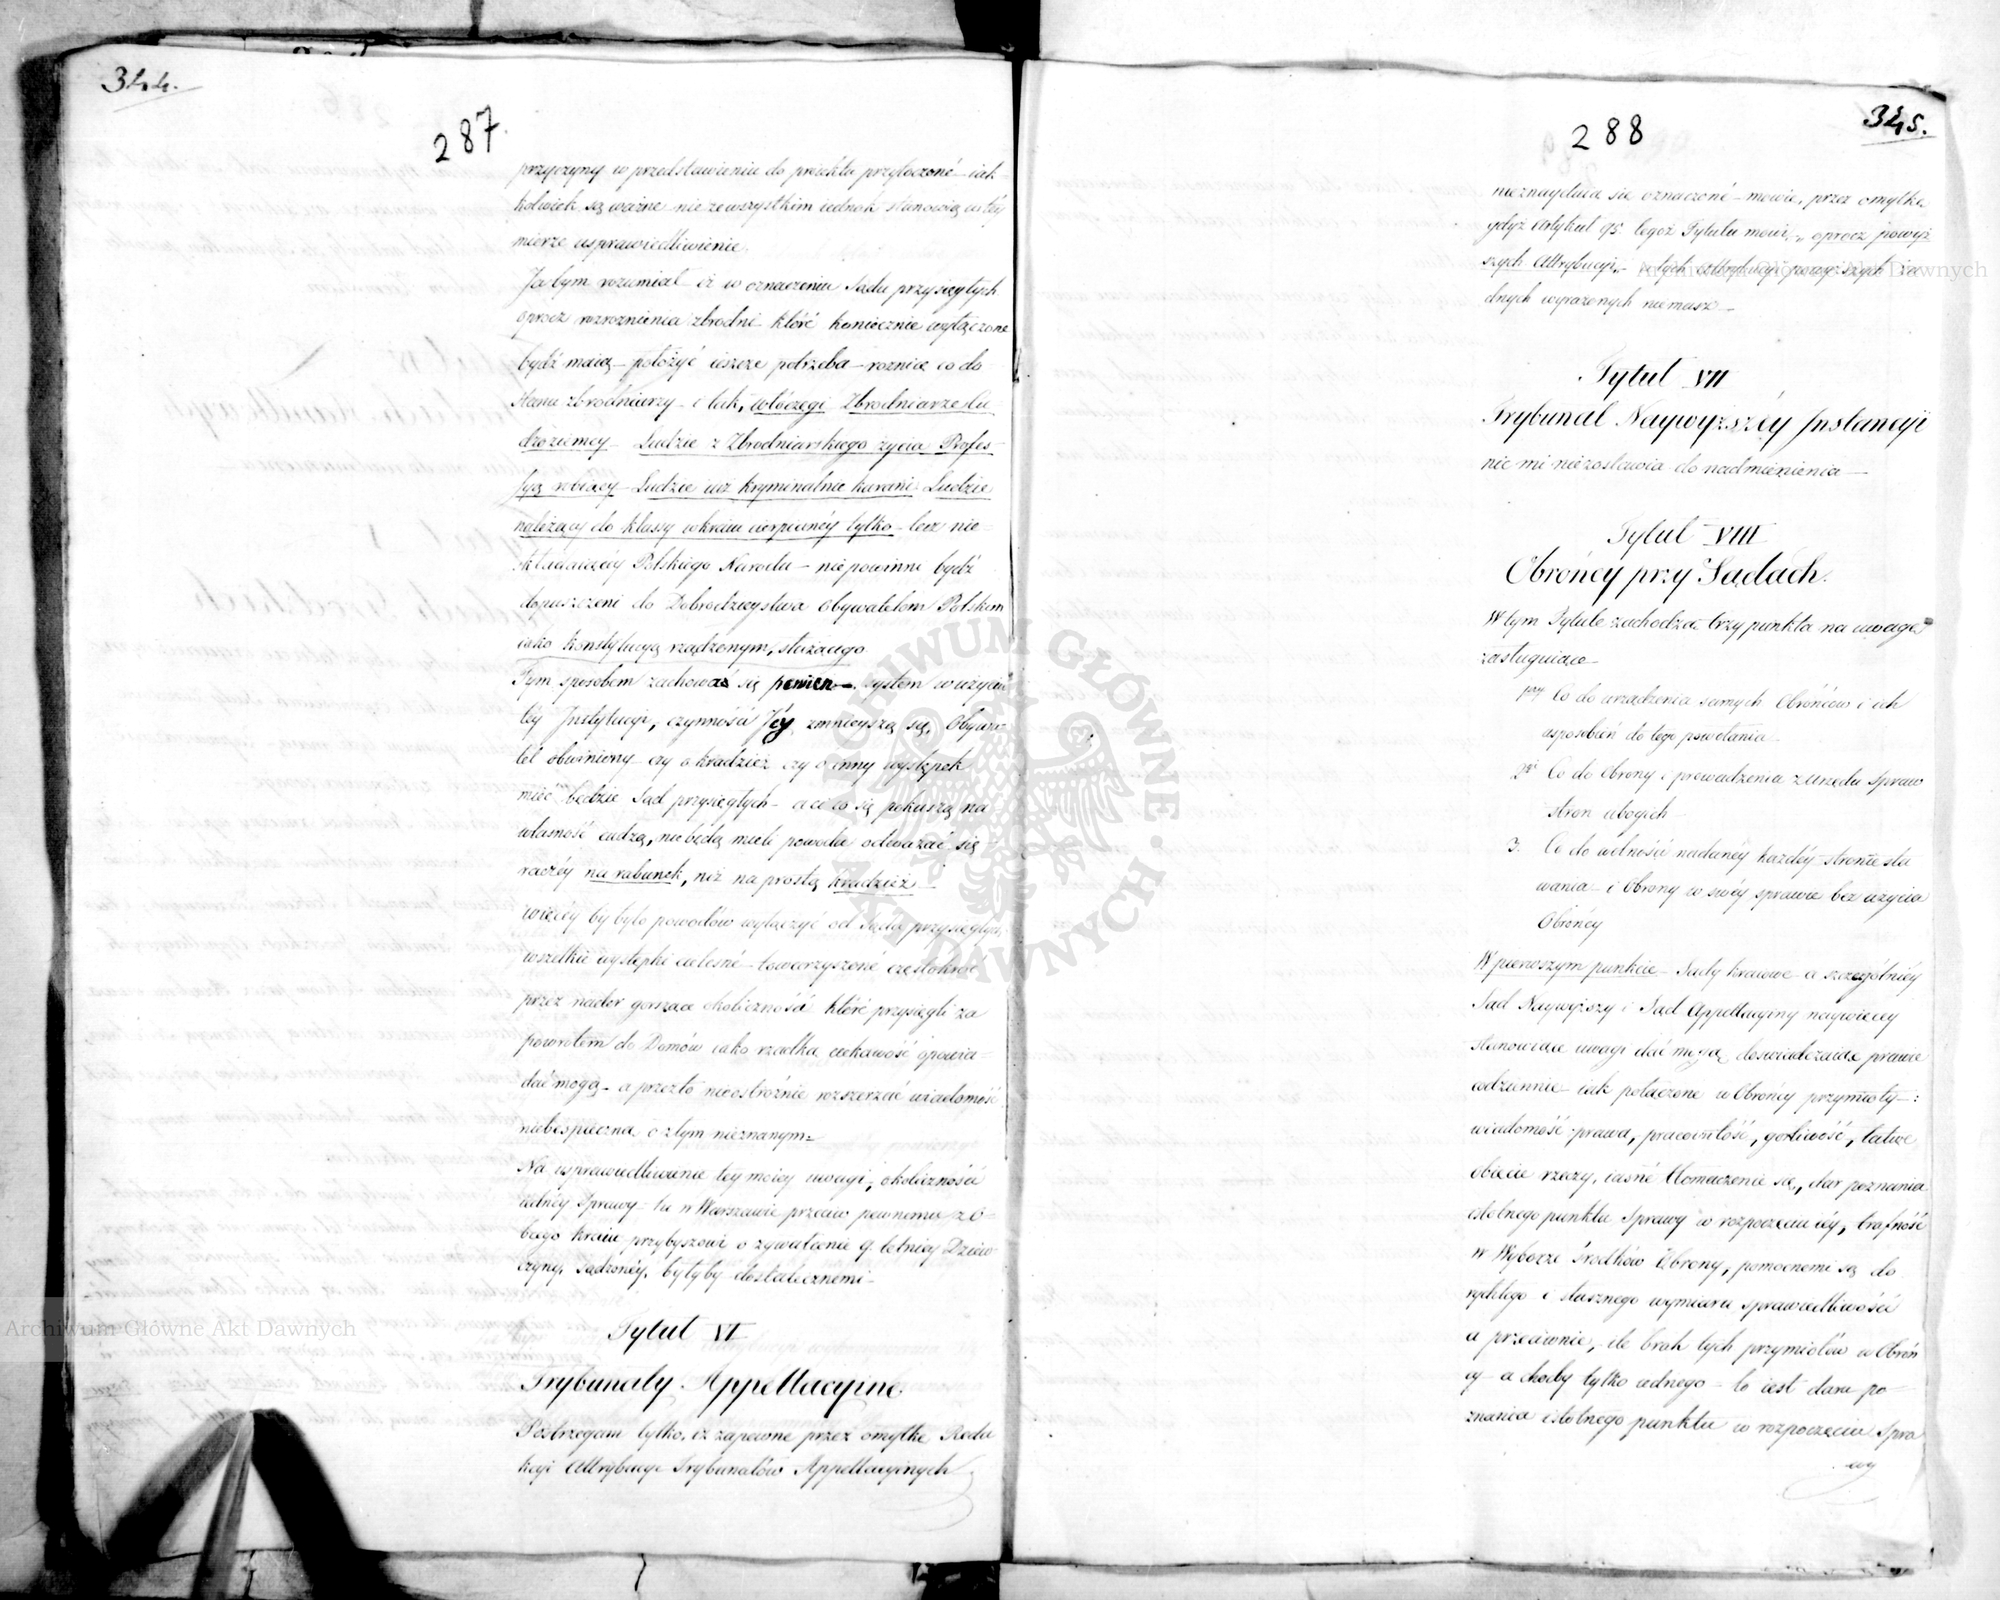 344.
287.
przyczyny w przedstawieniu do proiektu przyłączoné iak
kolwiek są ważne nie zewszystkim iednak stanowią w téy
mierze usprawiedliwienie.
Jabym rozumiał iż w oznaczeniu Sądu przysięgłych
oprocz rozroznienia zbrodni któré koniecznie wyłączone
bydź maią – położyć ieszcze potrzeba – roznicę co do
Stanu zbrodniarzy – i tak, włóczęgi Zbrodniarze Cu
dzoziemcy – Ludzie z Zbrodniarskiego życia Profes
syą robiący – Ludzie iuż kryminalnie karani – Ludzie
należący do klassy w kraiu cierpianéy tylko – lecz nie
składaiącéy Polskiego Narodu – nie powinni bydź
dopuszczeni do Dobrodzieystwa Obywatelom Polskim
iako konstytucyą rządzonym, służącego
Tym sposobem zachować się pewien – system w użyciu
téy Instytucyi, czynności Jéy zmnieyszą się, Obywa
tel obwiniony czy o kradzież czy o inny występek
mieć będzie Sąd przysięgłych – a ci co się pokuszą na
własność cudzą, nie będą mieli powodu odważać się
raczéy na rabunek, niż na prostą kradzież –
więcéy by było powodów wyłączyć od Sądu przysięgłych
wszelkie występki cielesné – towarzyszoné częstokroć
przez nader gorszące okoliczności któré przysięgli za
powrotem do Domów iako rzadką ciekawość opowia
dać mogą – a przezto nieostrożnie rozszerzać wiadomość
niebespieczną o złym nieznanym=
Na usprawiedliwienie téy moiéy uwagi, okoliczności
iednéy Sprawy – tu w Warszawie przeciw pewnemu z O–
bcego kraiu przybyszowi o zgwałcenie 9. letniéy Dziew
czyny, Sądzonéy, byłyby dostatecznemi –
Tytuł VI
Trybunały Appellacyine.
Postrzegam tylko, iż zapewne przez omyłkę Reda
kcyi Attrybucye Trybunałów Appellacyinych
345.
288
nieznayduią się oznaczoné – mowię, przez omyłkę
gdyż Artykuł 95. tegoż Tytułu mowi, „oprocz powyż
szych Attrybucyi,, – a tych Attrybucyi powyższych ża
dnych wyrażonych niemasz –
Tytuł VII
Trybunał Naywyższéy Instancyi
nic mi niezostawia do nadmienienia –
Tytuł VIII
Obrońcy przy Sądach.
W tym Tytule zachodzą trzy punkta na uwagę
zasługuiące –
1mo Co do urządzenia samych Obrońców i ich
usposobień do tego powołania
2do Co do Obrony i prowadzenia z urzędu Spraw
stron ubogich –
3. Co do wolności nadanéy każdéy stronie sta
wania – i Obrony w swéy sprawie bez użycia
Obrońcy
W pierwszym punkcie – Sądy kraiowe a szczególniéy
Sąd Naywyższy i Sąd Appellacyiny naywięcéy
stanowiące uwagi dać mogą doświadczaiąc prawie
codziennie iak połączone w Obrońcy przymioty – :
wiadomość prawa, pracowitość, gorliwość, łatwe
obięcie rzeczy, iasné tłomaczenie się, dar poznania
istotnego punktu Sprawy w rozpoczęciu iéy, trafność
w Wyborze środków Obrony, pomocnemi są do
rychłego i słusznego wymiaru sprawiedliwości
a przeciwnie, ile brak tych przymiotów w Obroń
cy – a choćby tylko iednego – to iest daru po–
znania istotnego punktu w rozpoczęciu Spra
wy
ARCHIWUM GŁÓWNE AKT DAWNYCH
Archiwum Główne Akt Dawnych
Archiwum Główne Akt Dawnych